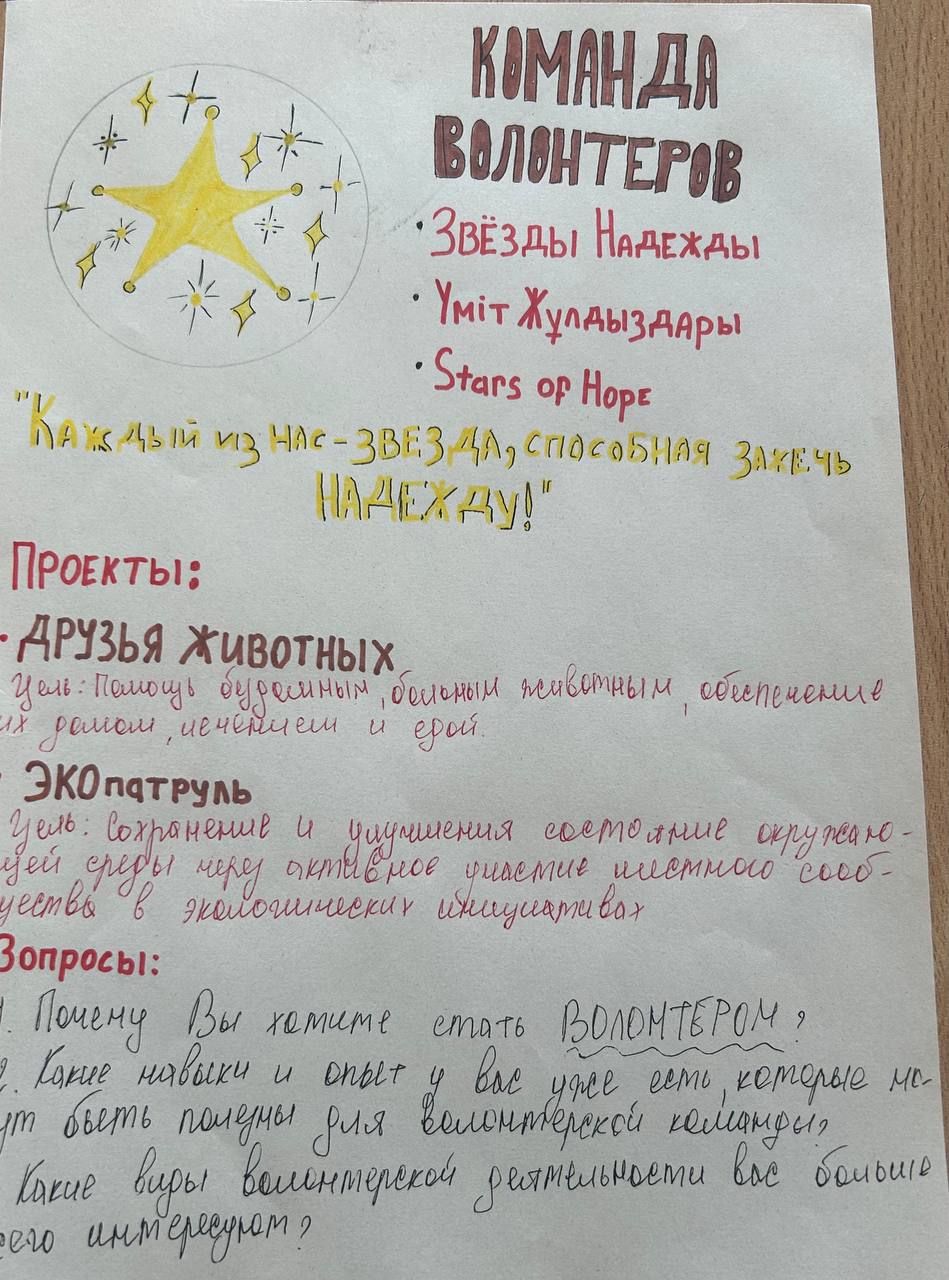 КОМАНДА
ВОЛОНТЕРОВ
• Звёзды Надежды
• Үміт Жұлдыздары
• Stars of Hope
"Каждый из нас - звезда, способная зажечь
НАДЕЖДУ!"
Проекты:
• ДРУЗЬЯ ЖИВОТНЫХ
Цель: Помощь бездомным, больным животным, обеспечение
их домом, лечением и едой.
• ЭКОпатруль
Цель: Сохранение и улучшения состояние окружаю-
щей среды через активное участие местного сооб-
щества в экологических инициативах
Вопросы:
1. Почему Вы хотите стать ВОЛОНТЕРОМ?
2. Какие навыки и опыт у вас уже есть, которые мо-
гут быть полезны для волонтерской команды?
Какие виды волонтерской деятельности вас больше
сего интересуют?